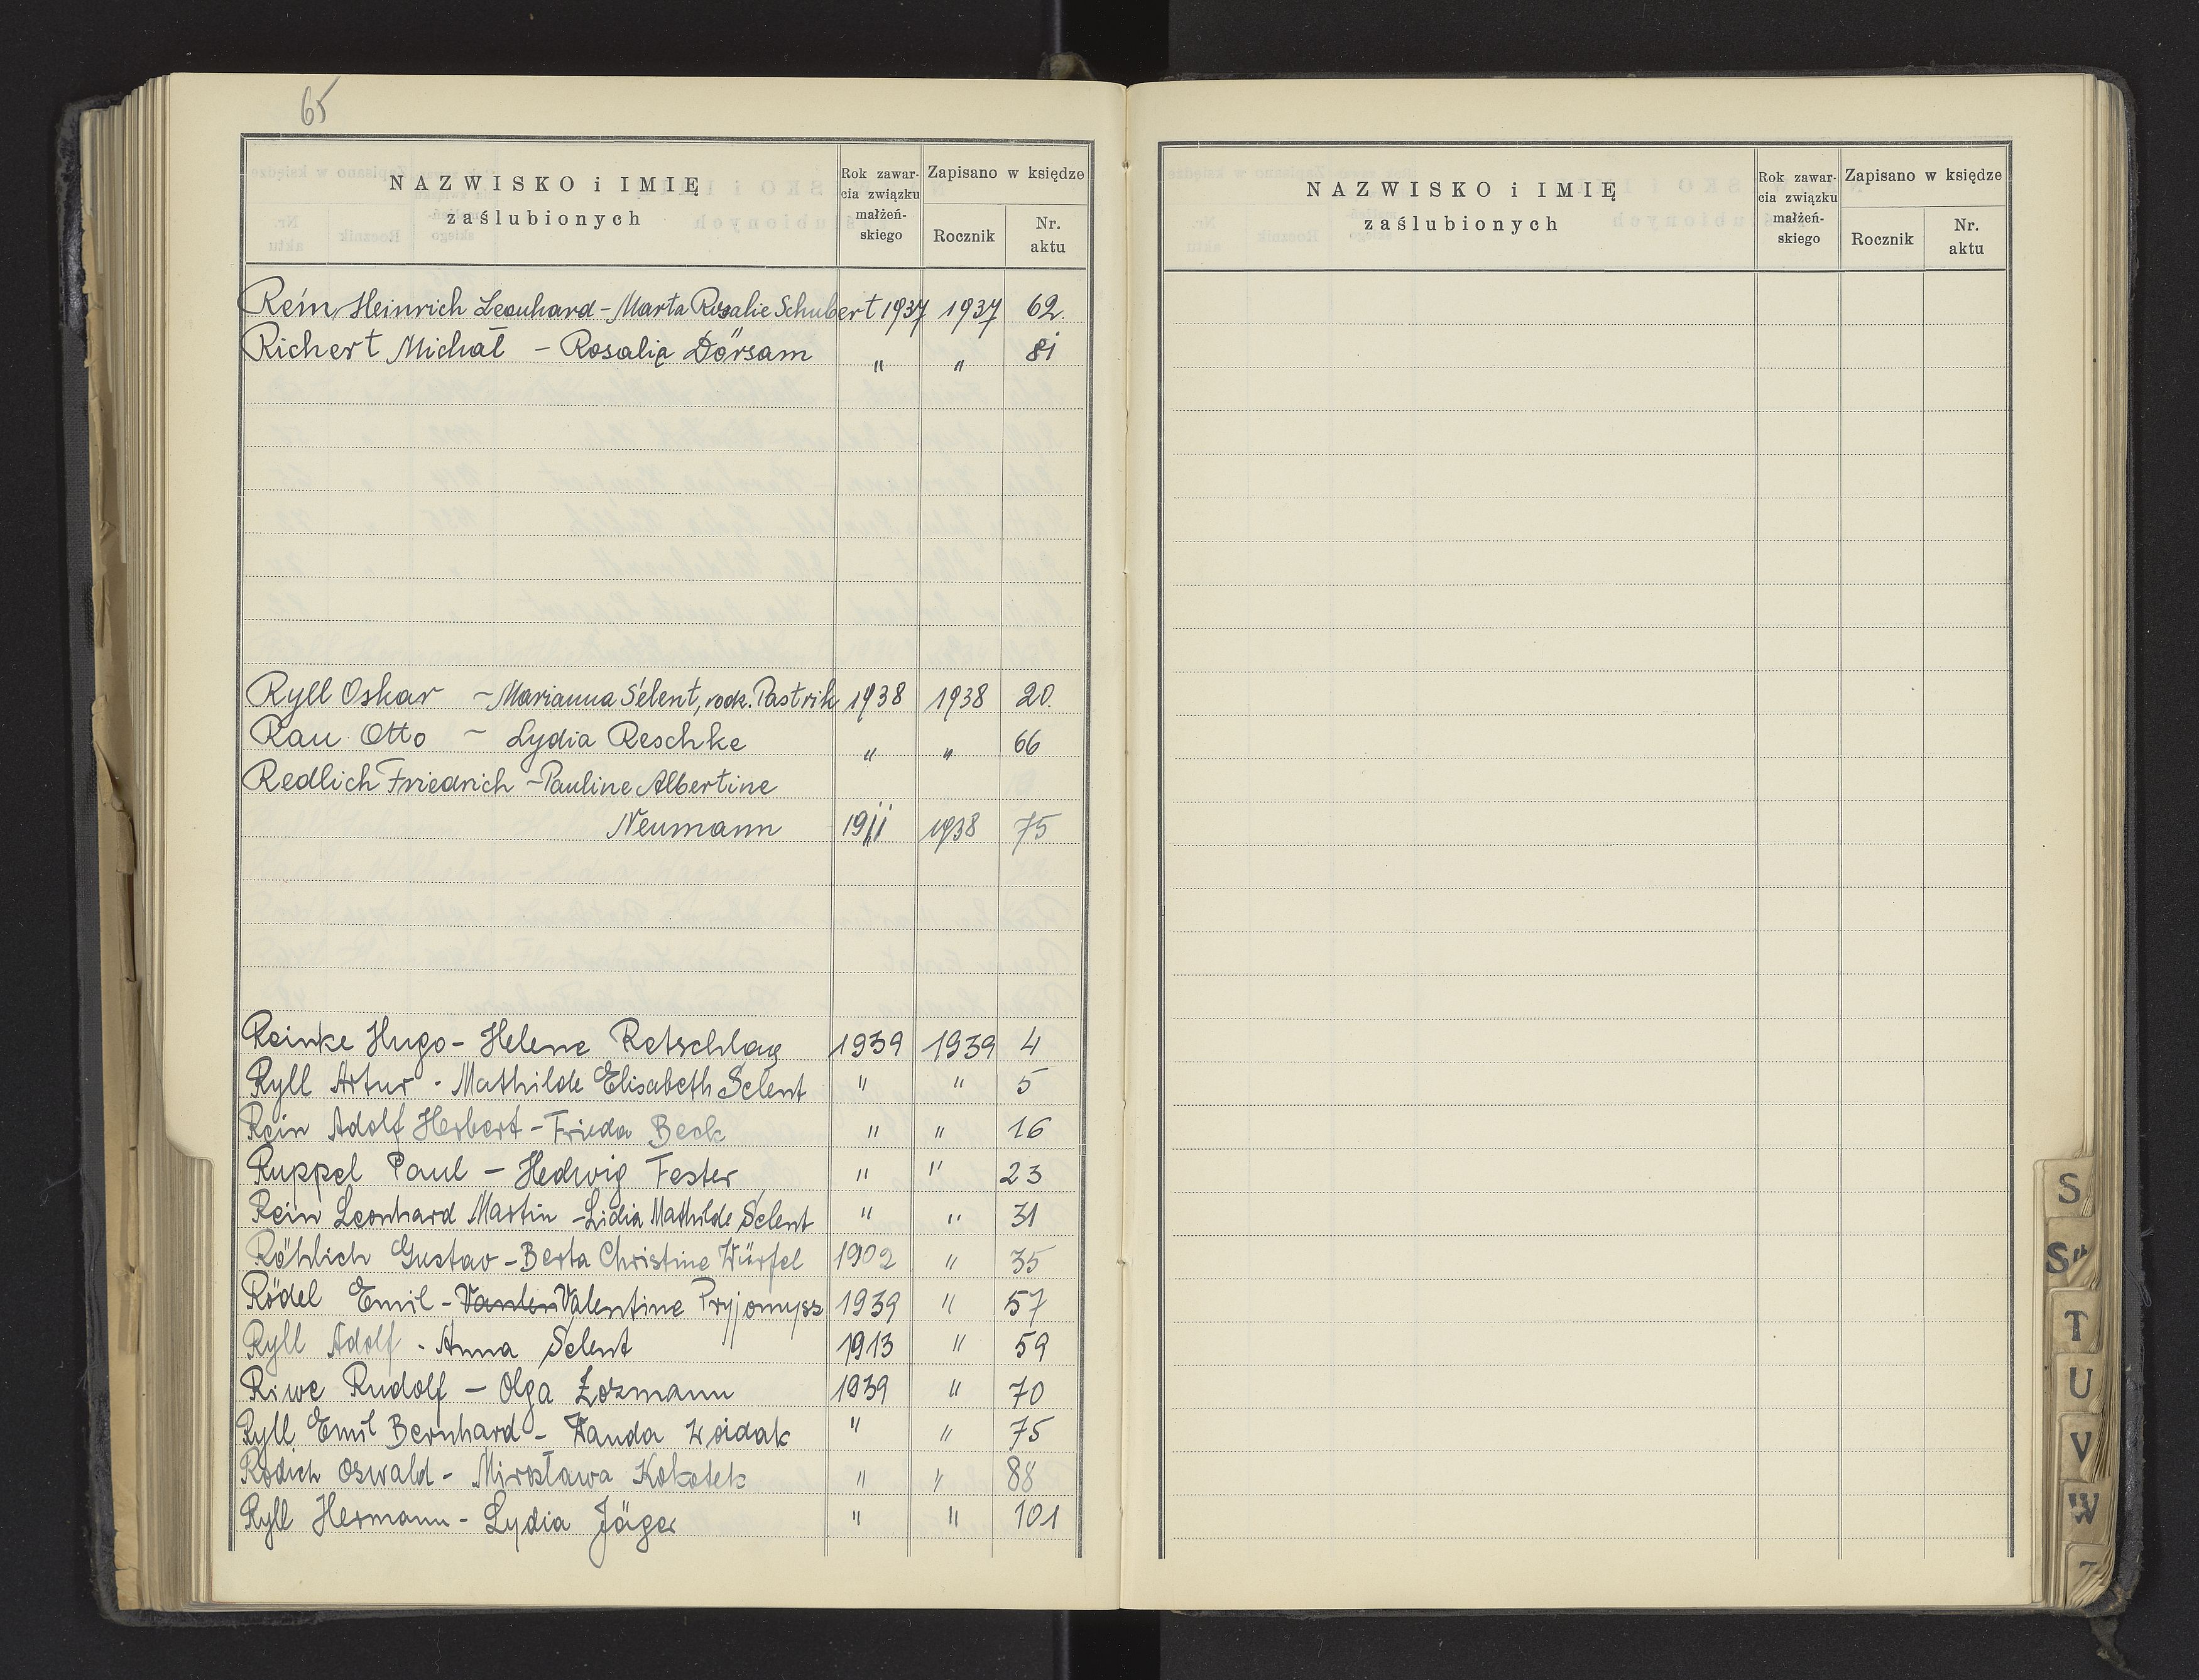 65
NAZWISKO i IMIĘ
zaślubionych
Rok zawar-
cia związku
małżeń-
skiego
Zapisano w księdze
Rocznik
Nr.
aktu
Rein Heinrich Leonhard - Marta Rosalie Schubert 1937 1937 62.
Richert Michał - Rosalia Dörsam " " 81
Ryll Oskar - Marianna Selent, rodz. Pastrik 1938 1938 20.
Rau Otto - Lydia Reschke " " 66
Redlich Friedrich - Pauline Albertine
Neumann 1911 1938 75
Reinke Hugo - Helene Retschlag 1939 1939 4
Ryll Artur - Mathilde Elisabeth Selent " " 5
Rein Adolf Herbert - Frieda Beck " " 16
Ruppel Paul - Hedwig Fester " " 23
Rein Leonhard Martin - Lidia Mathilde Selent " " 31
Röhlich Gustav - Berta Christine Würfel 1902 " 35
Rödel Emil - Valentine Pryjomysz 1939 " 57
Ryll Adolf - Anna Selent 1913 " 59
Riwe Rudolf - Olga 1939 " 70
Ryll Emil Bernhard - Wanda Woidak " " 75
Rodich Oswald - Mirosława Kokotek " " 88
Ryll Hermann - Lydia Jäger " " 101
NAZWISKO i IMIĘ
zaślubionych
Rok zawar-
cia związku
małżeń-
skiego
Zapisano w księdze
Rocznik
Nr.
aktu
S
S"
T
U
V
W